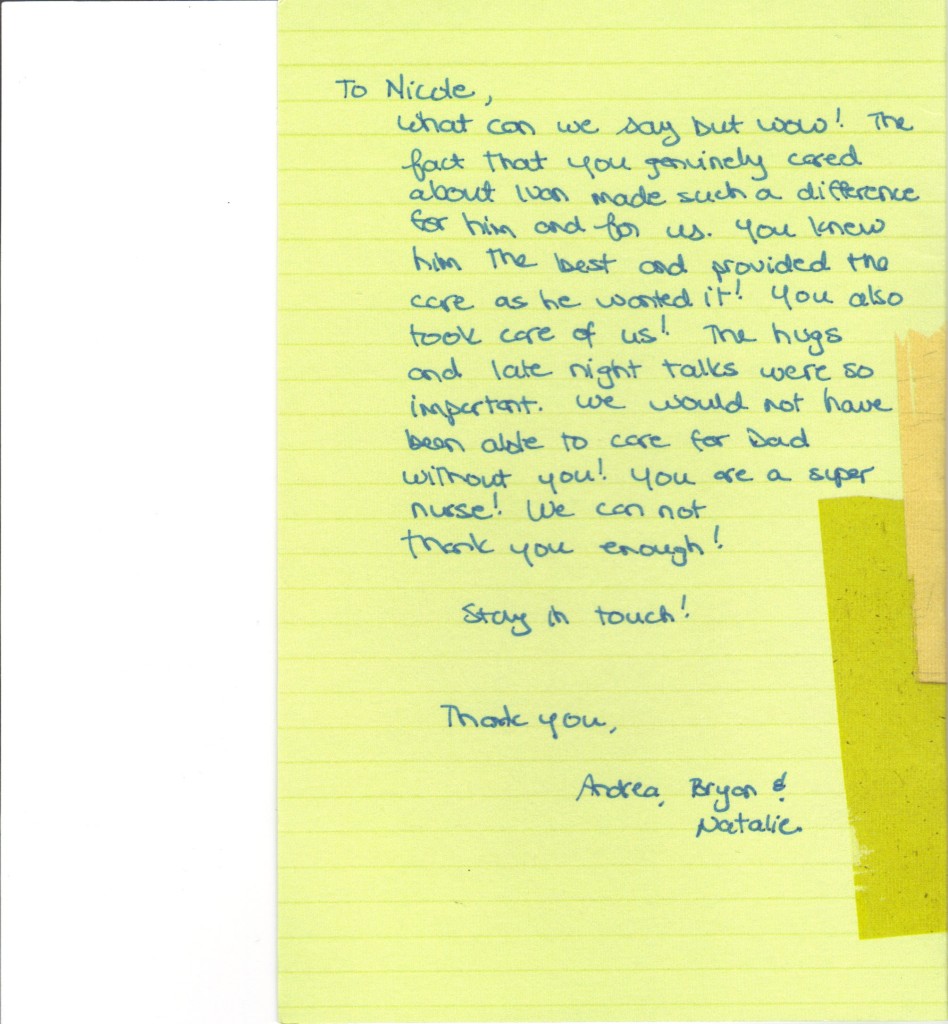 To Nicole,
What can we say but wow! The
fact that you genuinely cared
about Ivan made such a difference
for him and for us. You knew
him the best and provided the
care as he wanted it! You also
took care of us! The hugs
and late night talks were so
important. We would not have
been able to care for Dad
without you! You are a super
nurse! We can not
thank you enough!
Stay in touch!
Thank you,
Andrea, Bryan &
Natalie.